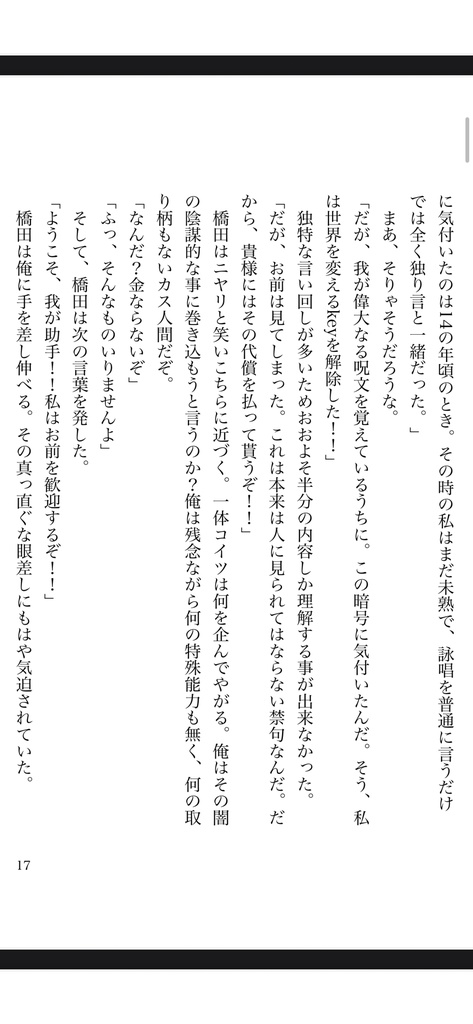 に気付いたのは14の年頃のとき。その時の私はまだ未熟で、詠唱を普通に言うだけ
では全く独り言と一緒だった。」
まあ、そりゃそうだろうな。
「だが、我が偉大なる呪文を覚えているうちに。この暗号に気付いたんだ。そう、私
は世界を変えるkeyを解除した！！」
独特な言い回しが多いためおおよそ半分の内容しか理解する事が出来なかった。
「だが、お前は見てしまった。これは本来は人に見られてはならない禁句なんだ。だ
から、貴様にはその代償を払って貰うぞ！！」
橋田はニヤリと笑いこちらに近づく。一体コイツは何を企んでやがる。俺はその闇
の陰謀的な事に巻き込もうと言うのか？俺は残念ながら何の特殊能力も無く、何の取
り柄もないカス人間だぞ。
「なんだ？金ならないぞ」
「ふっ、そんなものいりませんよ」
そして、橋田は次の言葉を発した。
「ようこそ、我が助手！！私はお前を歓迎するぞ！！」
橋田は俺に手を差し伸べる。その真っ直ぐな眼差しにもはや気迫されていた。
17